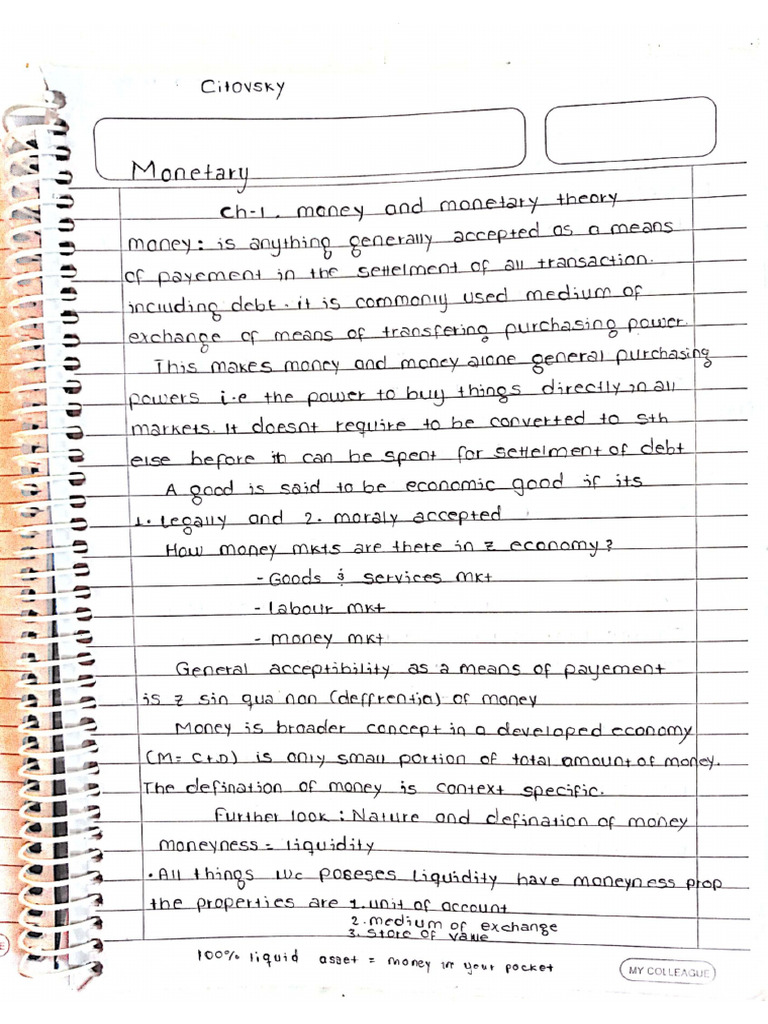 Citovsky
Monetary
Ch-1. money and monetary theory
money: is anything generally accepted as a means
of payement in the settelment of all transaction.
including debt. it is commonly used medium of
exchange of means of transfering purchasing power.
This makes money and money alone general purchasing
powers i.e the power to buy things directly in all
markets. It doesnt require to be converted to sth
else before it can be spent for settelment of debt
A good is said to be economic good if its
1. legally and 2. moraly accepted
How money mkts are there in z economy?
- Goods & services mkt
- labour mkt
- money mkt
General acceptibility as a means of payement
is z sin qua non (deffrentia) of money
Money is broader concept in a developed economy
(M= C+D) is only small portion of total amount of money.
The defination of money is context specific.
Further look: Nature and defination of money
moneyness = liquidity
. All things we poseses liquidity have moneyness prop
the properties are 1. unit of account
2. medium of exchange
3. store of value
100% liquid asset = money in your pocket
MY COLLEAGUE